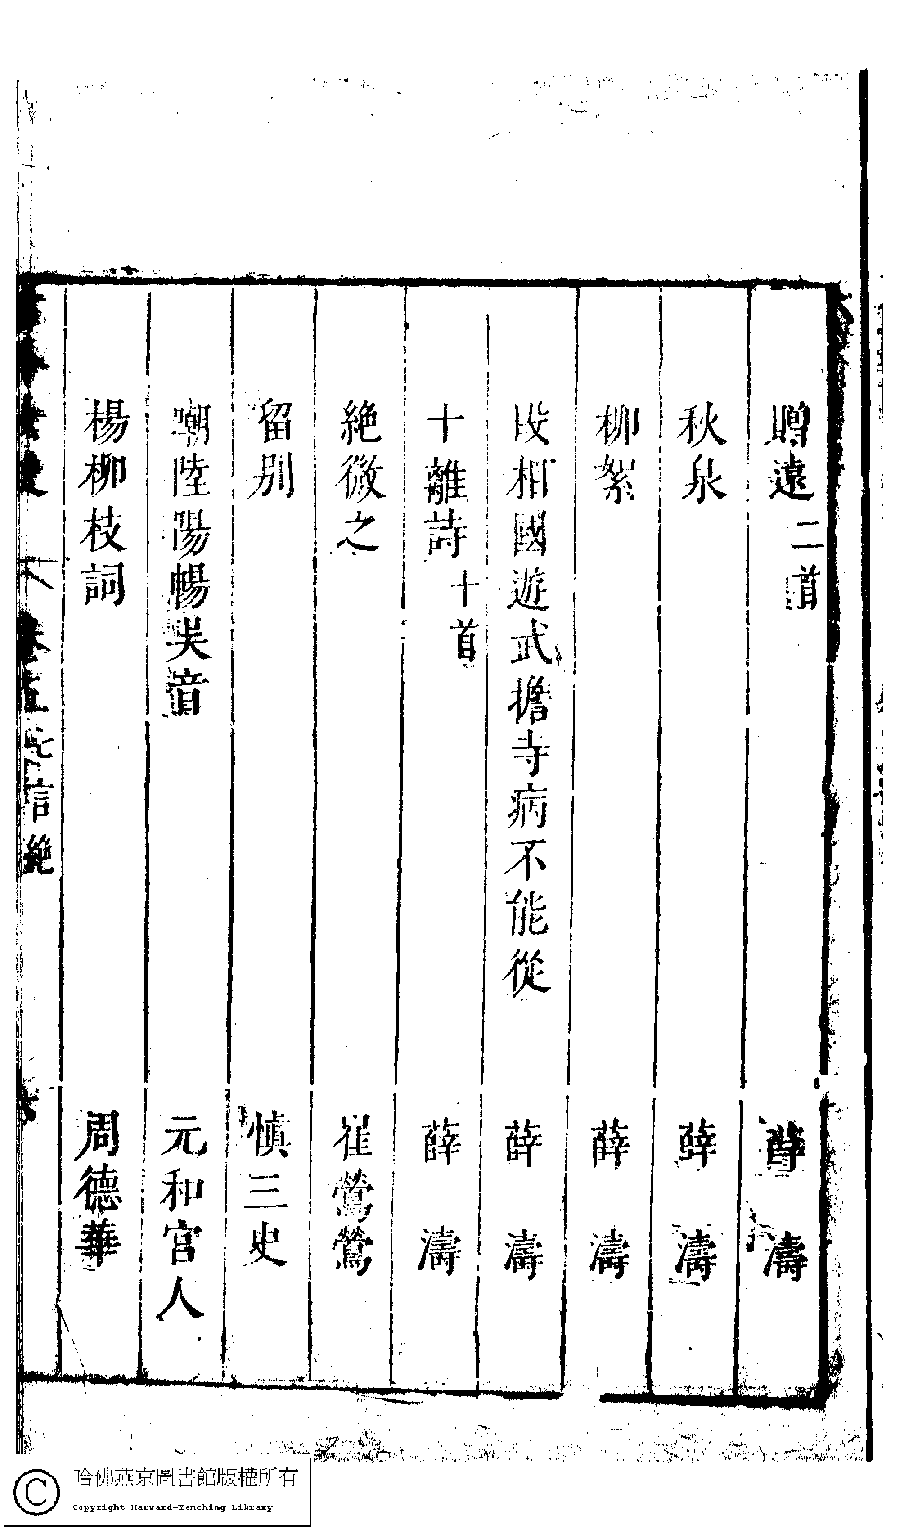 贈遠 二首 薛濤
秋泉 薛濤
柳絮 薛濤
段相國遊武擔寺病不能從 薛濤
十離詩 十首 薛濤
絶微之 崔鶯鶯
留别 慎三史
嘲陸陽暢吳音 元和宮人
楊柳枝詞 周德華
哈佛燕京圖書館版權所有
Copyright Harvard-Yenching Library